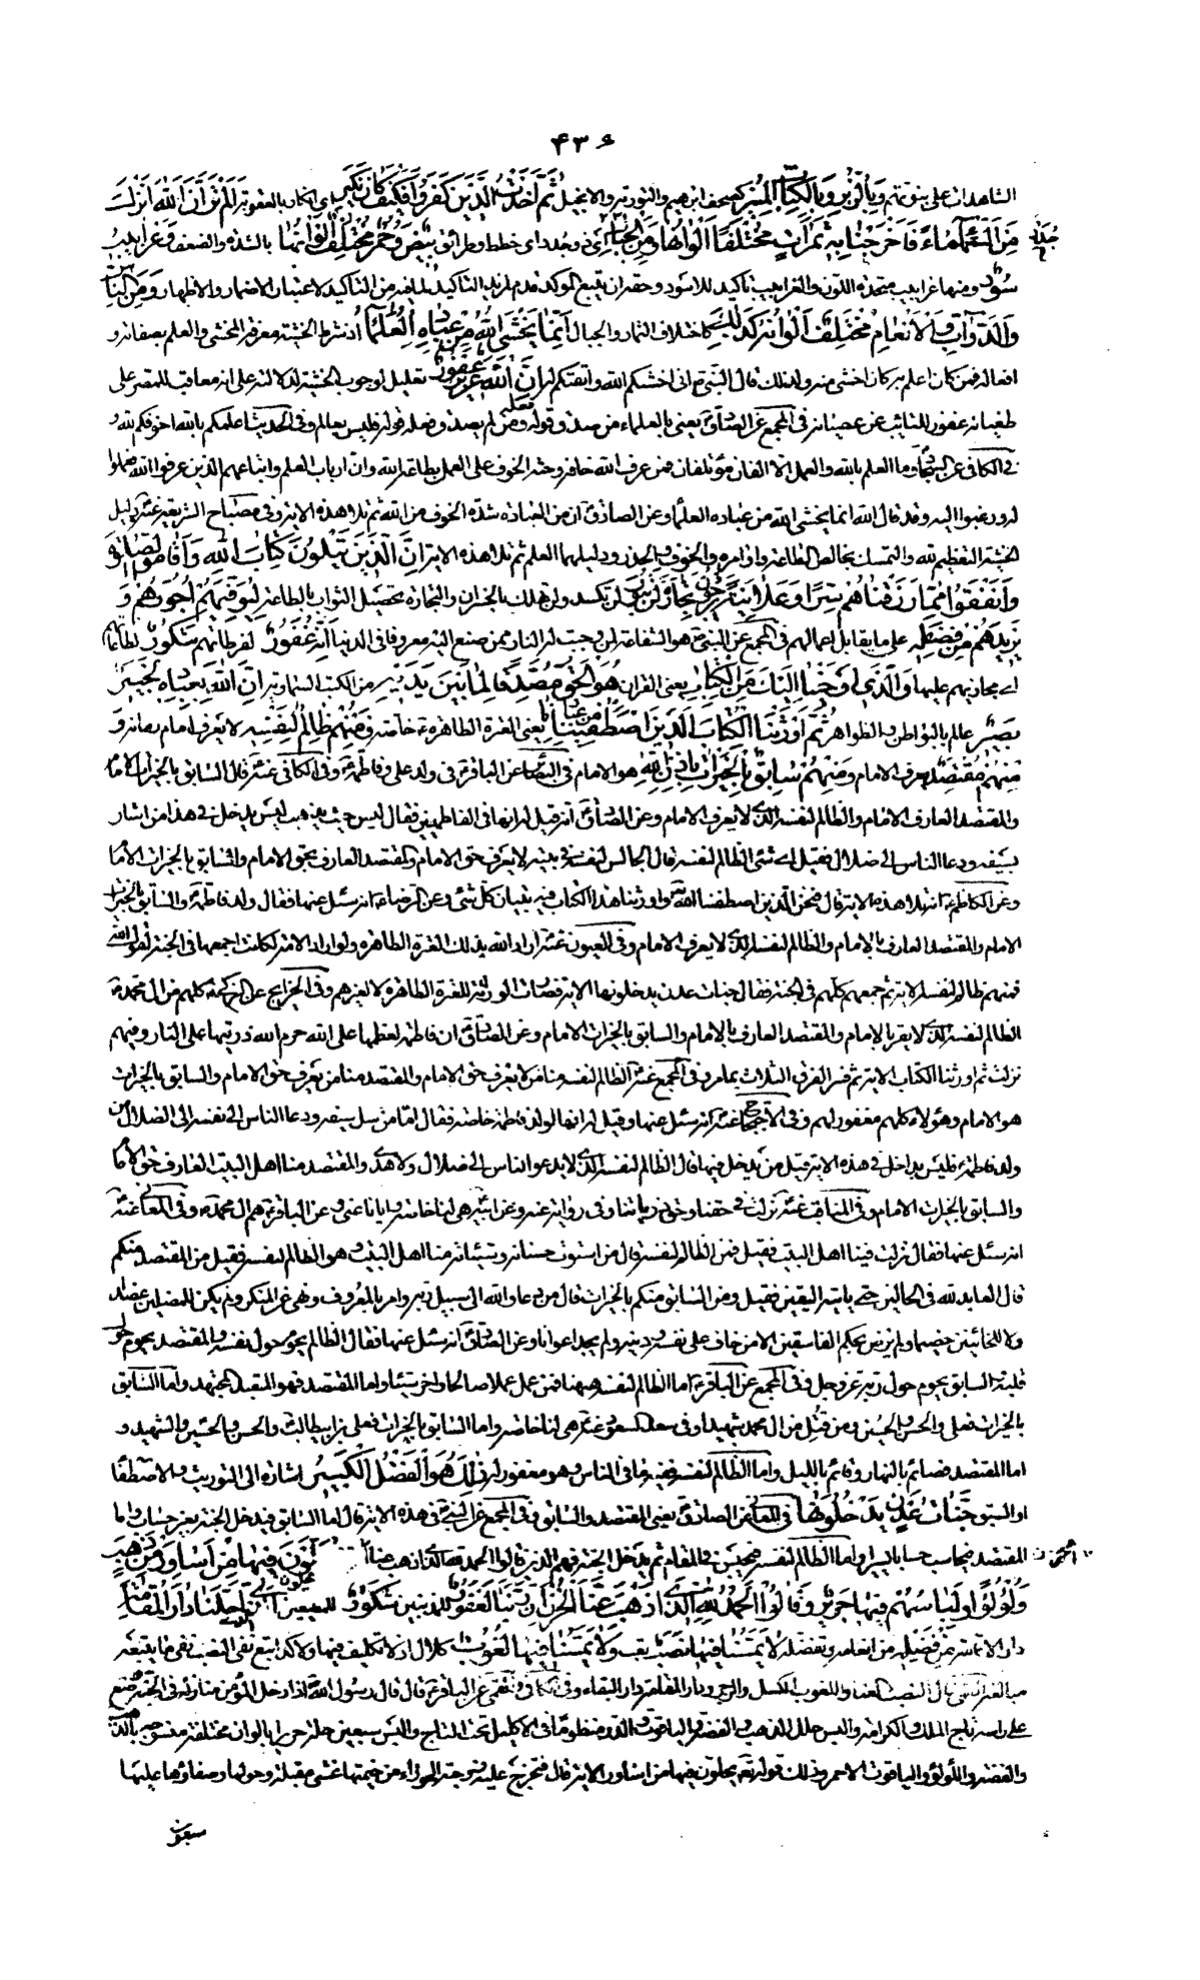 ۴۳۶
الشاهدات على نبوتهم وَبِالزُّبُرِ وَبِالْكِتَابِ الْمُنِيرِ كصحف ابرهيم والتورية والانجيل ثُمَّ أَخَذْتُ الَّذِينَ كَفَرُوا فَكَيْفَ كَانَ نَكِيرِ اى انكارى بالعقوبة أَلَمْ تَرَ أَنَّ اللَّهَ أَنْزَلَ
مِنَ السَّمَاءِ مَاءً فَأَخْرَجْنَا بِهِ ثَمَرَاتٍ مُخْتَلِفًا أَلْوَانُهَا وَمِنَ الْجِبَالِ جُدَدٌ اى ذو جدد اى خطط وطرائق بِيضٌ وَحُمْرٌ مُخْتَلِفٌ أَلْوَانُهَا بالشدة والضعف وَغَرَابِيبُ
سُودٌ ومنها غرابيب متحدة اللون والغرابيب تأكيد للاسود وحقه ان يتبع المؤكد قدم لمزيد التأكيد لما فيه من التاكيد لاعتبار الاضمار والاظهار وَمِنَ النَّاسِ
وَالدَّوَابِّ وَالْأَنْعَامِ مُخْتَلِفٌ أَلْوَانُهُ كَذَلِكَ كاختلاف الثمار والجبال إِنَّمَا يَخْشَى اللَّهَ مِنْ عِبَادِهِ الْعُلَمَاءُ اذ شرط الخشية معرفة المخشى والعلم بصفاته و
افعاله فمن كان اعلم به كان اخشى منه ولذلك قال النبى انى اخشيكم لله واتقيكم له إِنَّ اللَّهَ عَزِيزٌ غَفُورٌ تعليل لوجوب الخشية لدلالته على انه معاقب للمصر على
طغيانه غفور للتائب عن عصيانه فى المجمع عن الصادق يعنى بالعلماء من صدق قوله فعله ومن لم يصدق فعله قوله فليس بعالم وفى الحديث اعلمكم بالله اخوفكم لله و
فى الكافى عن السجاد وما العلم بالله والعمل الا الفان مؤتلفان فمن عرف الله خافه وحثه الخوف على العمل بطاعة الله وان ارباب العلم واتباعهم الذين عرفوا الله فعملوا
له ورغبوا اليه وقد قال الله انما يخشى الله من عباده العلماء وعن الصادق ان من العبادة شدة الخوف من الله ثم تلا هذه الاية وفى مصباح الشريعة عنه دليل
الخشية التعظيم لله والتمسك بخالص الطاعة واوامره والخوف والحذر ودليلهما العلم ثم تلا هذه الاية إِنَّ الَّذِينَ يَتْلُونَ كِتَابَ اللَّهِ وَأَقَامُوا الصَّلَاةَ
وَأَنْفَقُوا مِمَّا رَزَقْنَاهُمْ سِرًّا وَعَلَانِيَةً يَرْجُونَ تِجَارَةً لَنْ تَبُورَ لن تكسد ولن تهلك بالخسران والتجارة تحصيل الثواب بالطاعة لِيُوَفِّيَهُمْ أُجُورَهُمْ وَ
يَزِيدَهُمْ مِنْ فَضْلِهِ على ما يقابل اعمالهم فى المجمع عن النبى هو الشفاعة لمن وجبت له النار ممن صنع اليه معروفا فى الدنيا إِنَّهُ غَفُورٌ لفرطاتهم شَكُورٌ لطاعاتهم
اى مجازيهم عليها وَالَّذِي أَوْحَيْنَا إِلَيْكَ مِنَ الْكِتَابِ يعنى القرآن هُوَ الْحَقُّ مُصَدِّقًا لِمَا بَيْنَ يَدَيْهِ من الكتب السماوية إِنَّ اللَّهَ بِعِبَادِهِ لَخَبِيرٌ
بَصِيرٌ عالم بالبواطن والظواهر ثُمَّ أَوْرَثْنَا الْكِتَابَ الَّذِينَ اصْطَفَيْنَا مِنْ عِبَادِنَا يعنى العترة الطاهرة خاصة فَمِنْهُمْ ظَالِمٌ لِنَفْسِهِ لا يعرف امام زمانه وَ
مِنْهُمْ مُقْتَصِدٌ يعرف الامام وَمِنْهُمْ سَابِقٌ بِالْخَيْرَاتِ بِإِذْنِ اللَّهِ هو الامام فى البصائر عن الباقر هى فى ولد على وفاطمة وفى الكافى عنه قال السابق بالخيرات الامام
والمقتصد العارف للامام والظالم لنفسه الذى لا يعرف الامام وعن الصادق انه قيل له انها فى الفاطميين فقال ليس حيث يذهب ليس يدخل فى هذا من اشار
بسيفه ودعا الناس الى ضلال فقيل اى شئ الظالم لنفسه قال الجالس فى بيته لا يعرف حق الامام والمقتصد العارف بحق الامام والسابق بالخيرات الامام
وعن الكاظم انه تلا هذه الاية قال فنحن الذين اصطفينا الله واورثنا هذا الكتاب فيه تبيان كل شئ وعن الرضا انه سئل عنها فقال ولد فاطمة والسابق بالخيرات
الامام والمقتصد العارف بالامام والظالم لنفسه الذى لا يعرف الامام وفى العيون عنه اراد الله بذلك العترة الطاهرة ولو اراد الامة لكانت اجمعها فى الجنة لقول الله
فمنهم ظالم لنفسه الاية ثم جمعهم كلهم فى الجنة فقال جنات عدن يدخلونها الاية فصارت الوراثة للعترة الطاهرة لا لغيرهم وفى الخرايج عن الزكى كلهم من ال محمد
الظالم لنفسه الذى لا يقر بالامام والمقتصد العارف بالامام والسابق بالخيرات الامام وعن الصادق ان فاطمة لعظمها على الله حرم الله ذريتها على النار وفيهم
نزلت ثم اورثنا الكتاب الاية ثم فسر الفرق الثلاث بما مر وفى المجمع عنه الظالم لنفسه منا من لا يعرف حق الامام والمقتصد منا من يعرف حق الامام والسابق بالخيرات
هو الامام وهؤلاء كلهم مغفور لهم وفى الاحتجاج عنه انه سئل عنها وقيل له انها لولد فاطمة خاصة فقال اما من سل سيفه ودعا الناس الى نفسه الى الضلال من
ولد فاطمة فليس بداخل فى هذه الاية قيل من يدخل فيها قال الظالم لنفسه الذى لا يدعو الناس الى ضلال ولا هدى والمقتصد منا اهل البيت العارف حق الامام
والسابق بالخيرات الامام وفى المناقب عنه نزلت فى حقنا وحق ذرياتنا وفى رواية عنه وعن ابيه هى لنا خاصة وايانا عنى وعن الباقر هم ال محمد وفى المعانى عنه
انه سئل عنها فقال نزلت فينا اهل البيت فقيل فمن الظالم لنفسه قال من استوت حسناته وسيئاته منا اهل البيت وهو الظالم لنفسه فقيل من المقتصد منكم
قال العابد لله فى الحالين حتى ياتيه اليقين فقيل ومن السابق منكم بالخيرات قال من دعا والله الى سبيل ربه وامر بالمعروف ونهى عن المنكر ولم يكن للمضلين عضدا
ولا للخائنين خصيما ولم يرض بحكم الفاسقين الا من خاف على نفسه ودينه ولم يجد اعوانا وعن الصادق انه سئل عنها فقال الظالم يحوم حول نفسه والمقتصد يحوم حول
قلبه والسابق يحوم حول ربه عز وجل وفى المجمع عن الباقر اما الظالم لنفسه منا فمن عمل عملا صالحا واخر سيئا واما المقتصد فهو المتعبد المجتهد واما السابق
بالخيرات فعلى والحسن والحسين ومن قتل من ال محمد شهيدا وفى سعد السعود عنه هى لنا خاصة واما السابق بالخيرات فعلى بن ابيطالب والحسن والحسين والشهيد و
اما المقتصد فصائم بالنهار وقائم بالليل واما الظالم لنفسه ففيه ما فى الناس وهو مغفور له ذَلِكَ هُوَ الْفَضْلُ الْكَبِيرُ اشارة الى التوريث والاصطفاء
او السبق جَنَّاتُ عَدْنٍ يَدْخُلُونَهَا فى المعانى عن الصادق يعنى المقتصد والسابق وفى المجمع عن النبى فى هذه الاية قال اما السابق فيدخل الجنة بغير حساب واما
المقتصد فيحاسب حسابا يسيرا واما الظالم لنفسه فيحبس فى المقام ثم يدخل الجنة فهم الذين قالوا الحمد لله الذى اذهب عنا الحزن يُحَلَّوْنَ فِيهَا مِنْ أَسَاوِرَ مِنْ ذَهَبٍ
وَلُؤْلُؤًا وَلِبَاسُهُمْ فِيهَا حَرِيرٌ وَقَالُوا الْحَمْدُ لِلَّهِ الَّذِي أَذْهَبَ عَنَّا الْحَزَنَ إِنَّ رَبَّنَا لَغَفُورٌ للمذنبين شَكُورٌ للمطيعين الَّذِي أَحَلَّنَا دَارَ الْمُقَامَةِ
دار الاقامة مِنْ فَضْلِهِ من انعامه وتفضله لَا يَمَسُّنَا فِيهَا نَصَبٌ تعب وَلَا يَمَسُّنَا فِيهَا لُغُوبٌ كلال اذ لا تكليف فيها ولا كد اتبع نفى النصب نفى ما يتبعه
مبالغة القمى قال النصب العناء واللغوب الكسل والضجر ودار المقامة دار البقاء وفى الكافى والقمى عن الباقر قال قال رسول الله اذا دخل المؤمن منازله فى الجنة وضع
على راسه تاج الملك والكرامة والبس حلل الذهب والفضة والياقوت والدر منظوما فى الاكليل تحت التاج والبس سبعين حلة حرير بالوان مختلفة منسوجة بالذهب
والفضة واللؤلؤ والياقوت الاحمر وذلك قوله تع يحلون فيها من اساور الاية قال فتخرج عليه زوجته الحوراء من خيمتها تمشى مقبلة وحولها وصفاؤها عليها
سبعون